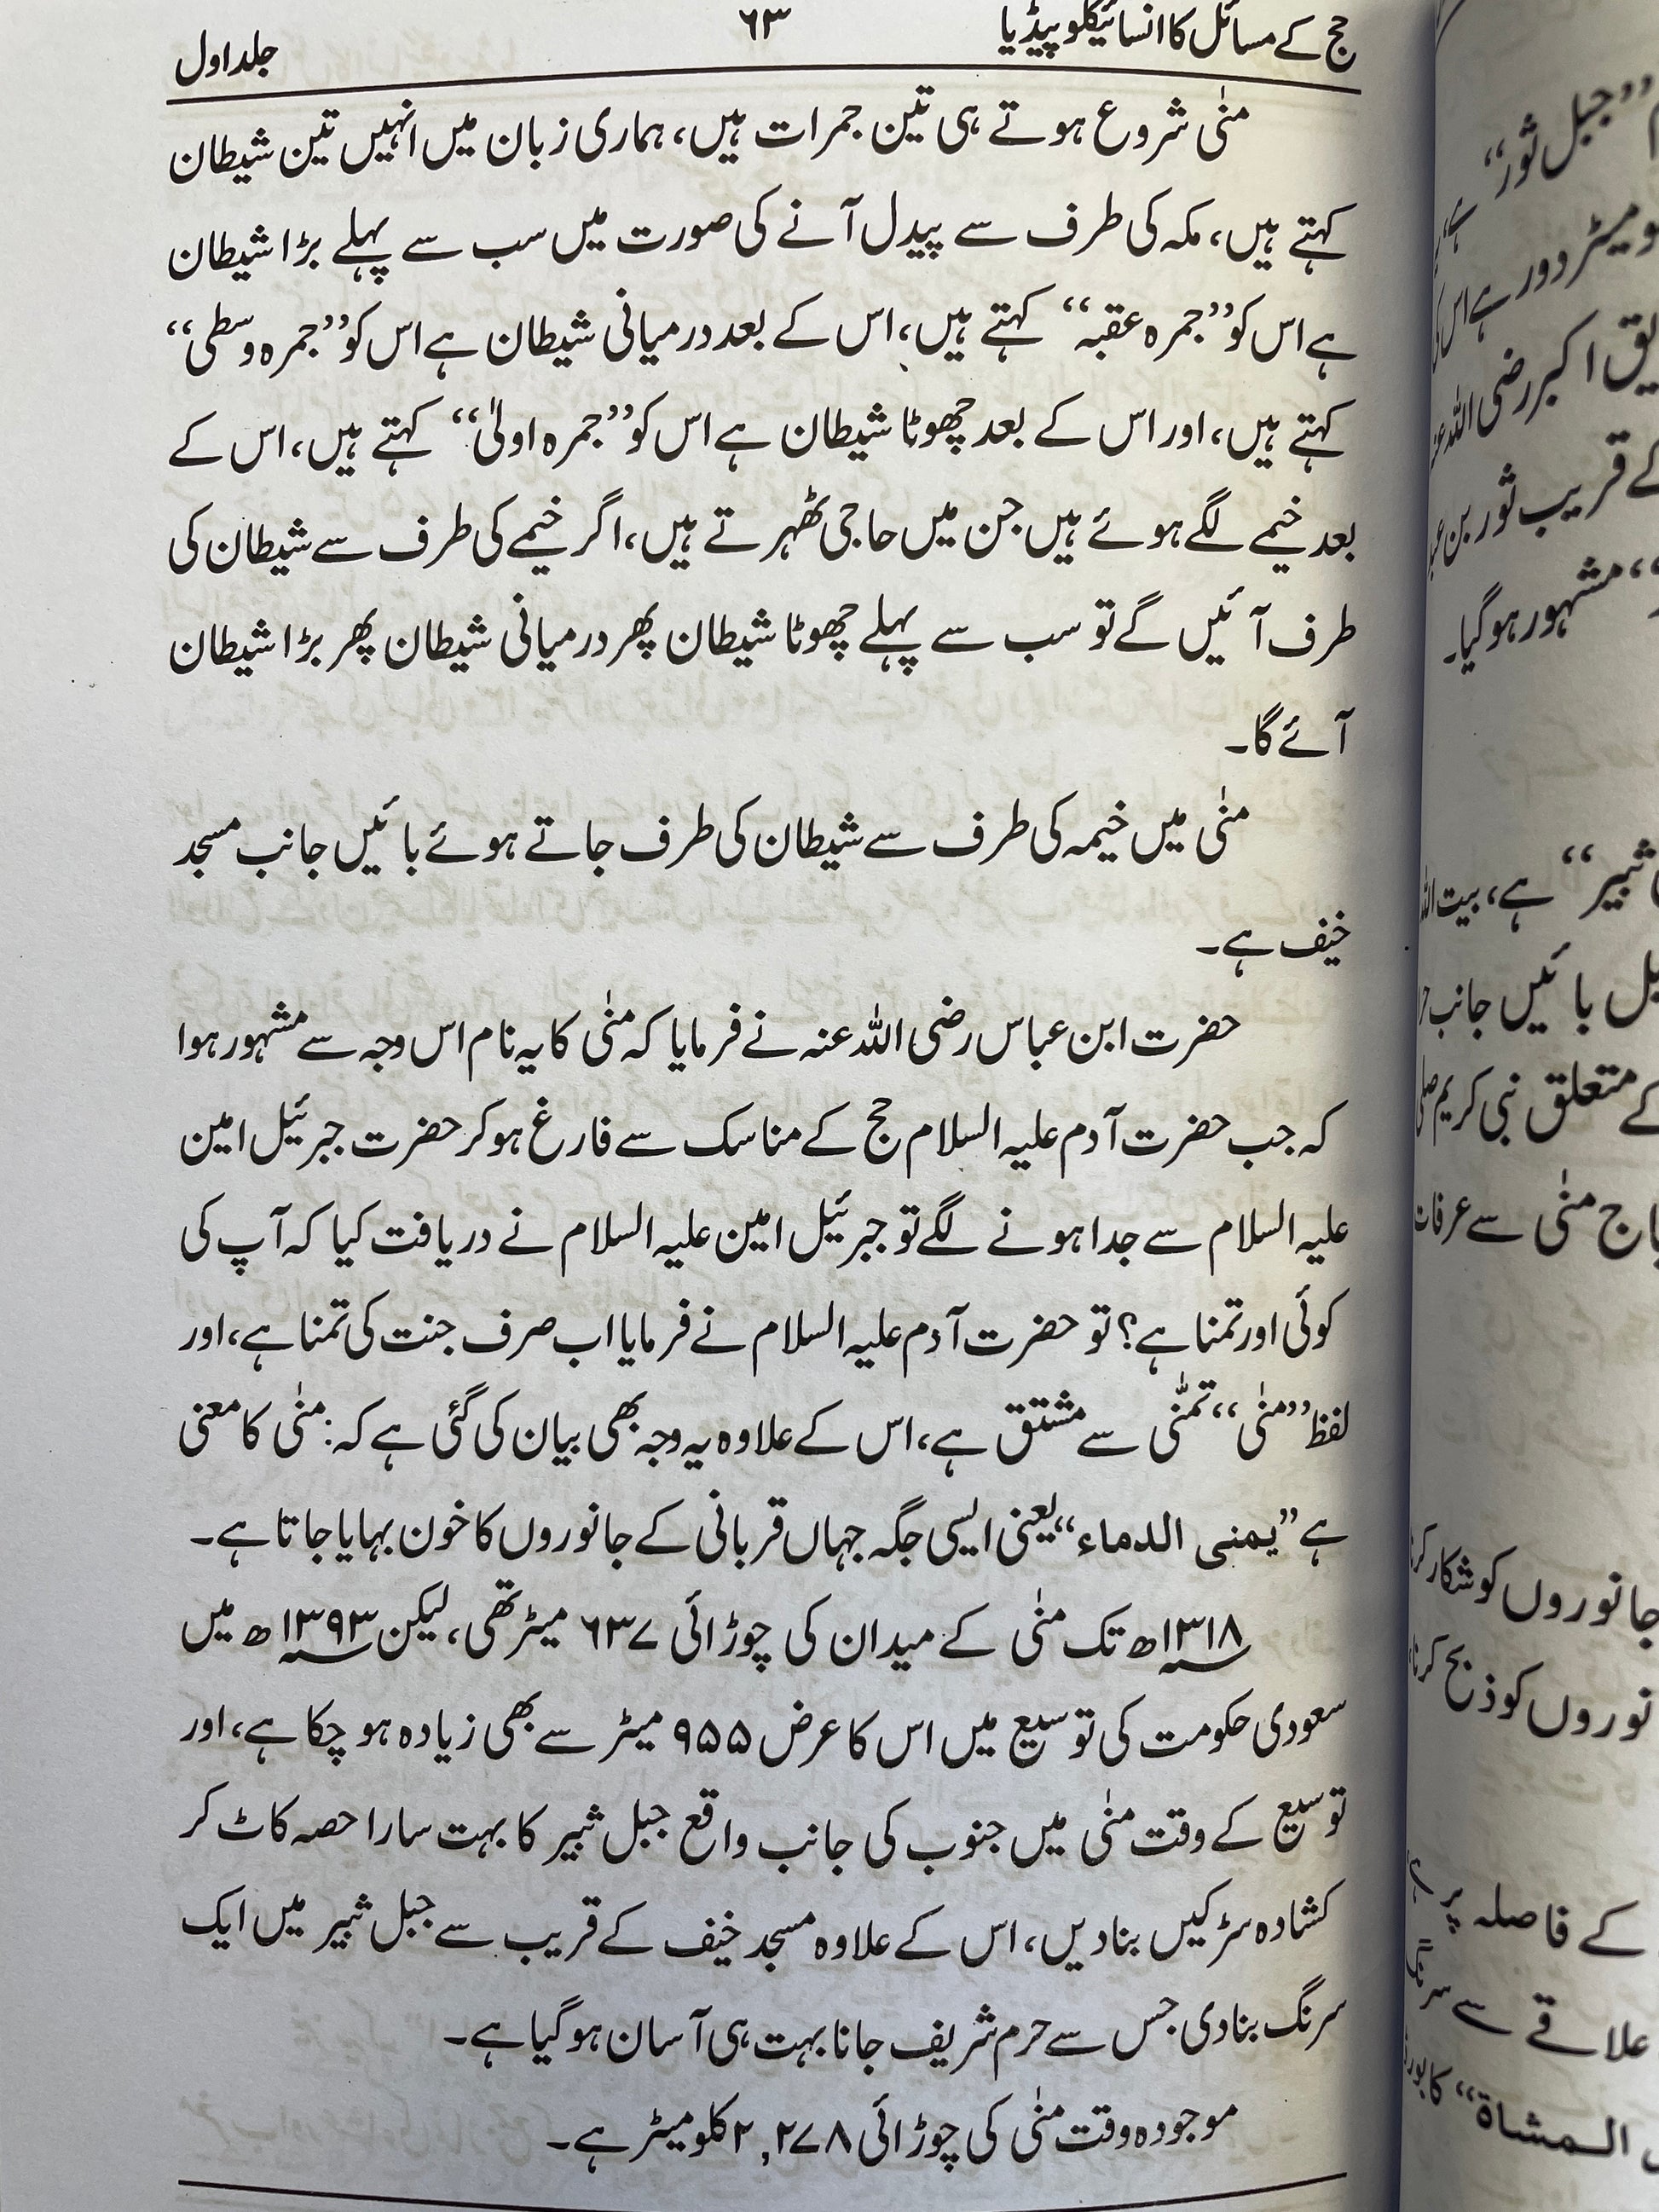 حج کے مسائل کا انسائیکلوپیڈیا ۶۳ جلد اول
منٰی شروع ہوتے ہی تین جمرات ہیں، ہماری زبان میں انہیں تین شیطان
کہتے ہیں، مکہ کی طرف سے پیدل آنے کی صورت میں سب سے پہلے بڑا شیطان
ہے اس کو ”جمرہ عقبہ“ کہتے ہیں، اس کے بعد درمیانی شیطان ہے اس کو ”جمرہ وسطی“
کہتے ہیں، اور اس کے بعد چھوٹا شیطان ہے اس کو ”جمرہ اولیٰ“ کہتے ہیں، اس کے
بعد خیمے لگے ہوئے ہیں جن میں حاجی ٹھہرتے ہیں، اگر خیمے کی طرف سے شیطان کی
طرف آئیں گے تو سب سے پہلے چھوٹا شیطان پھر درمیانی شیطان پھر بڑا شیطان
آئے گا۔
منٰی میں خیمہ کی طرف سے شیطان کی طرف جاتے ہوئے بائیں جانب مسجد
خیف ہے۔
حضرت ابن عباس رضی اللہ عنہ نے فرمایا کہ منٰی کا یہ نام اس وجہ سے مشہور ہوا
کہ جب حضرت آدم علیہ السلام حج کے مناسک سے فارغ ہوکر حضرت جبرئیل امین
علیہ السلام سے جدا ہونے لگے تو جبرئیل امین علیہ السلام نے دریافت کیا کہ آپ کی
کوئی اور تمنا ہے؟ تو حضرت آدم علیہ السلام نے فرمایا اب صرف جنت کی تمنا ہے، اور
لفظ ”منٰی“ تمنّٰی سے مشتق ہے، اس کے علاوہ یہ وجہ بھی بیان کی گئی ہے کہ: منٰی کا معنی
ہے ”یمنی الدماء“ یعنی ایسی جگہ جہاں قربانی کے جانوروں کا خون بہایا جاتا ہے۔
۱۳۱۸ھ تک منٰی کے میدان کی چوڑائی ۶۳۷ میٹر تھی، لیکن ۱۳۹۳ھ میں
سعودی حکومت کی توسیع میں اس کا عرض ۹۵۵ میٹر سے بھی زیادہ ہو چکا ہے، اور
توسیع کے وقت منٰی میں جنوب کی جانب واقع جبل ثبیر کا بہت سارا حصہ کاٹ کر
کشادہ سڑکیں بنادیں، اس کے علاوہ مسجد خیف کے قریب سے جبل ثبیر میں ایک
سرنگ بنادی جس سے حرم شریف جانا بہت ہی آسان ہوگیا ہے۔
موجودہ وقت منٰی کی چوڑائی ۲,۲۷۸ کلومیٹر ہے۔
”جبل ثور“ ہے،
میٹر دور ہے اس
اکبر رضی اللہ
کے قریب ثور بن
“ مشہور ہوگیا۔
ثبیر“ ہے، بیت اللہ
بائیں جانب
کے متعلق نبی کریم
منٰی سے عرفات
جانوروں کو شکار
کو ذبح کرنا
کے فاصلہ پر
علاقے سے سرنگ
المشاۃ“ کا بورڈ